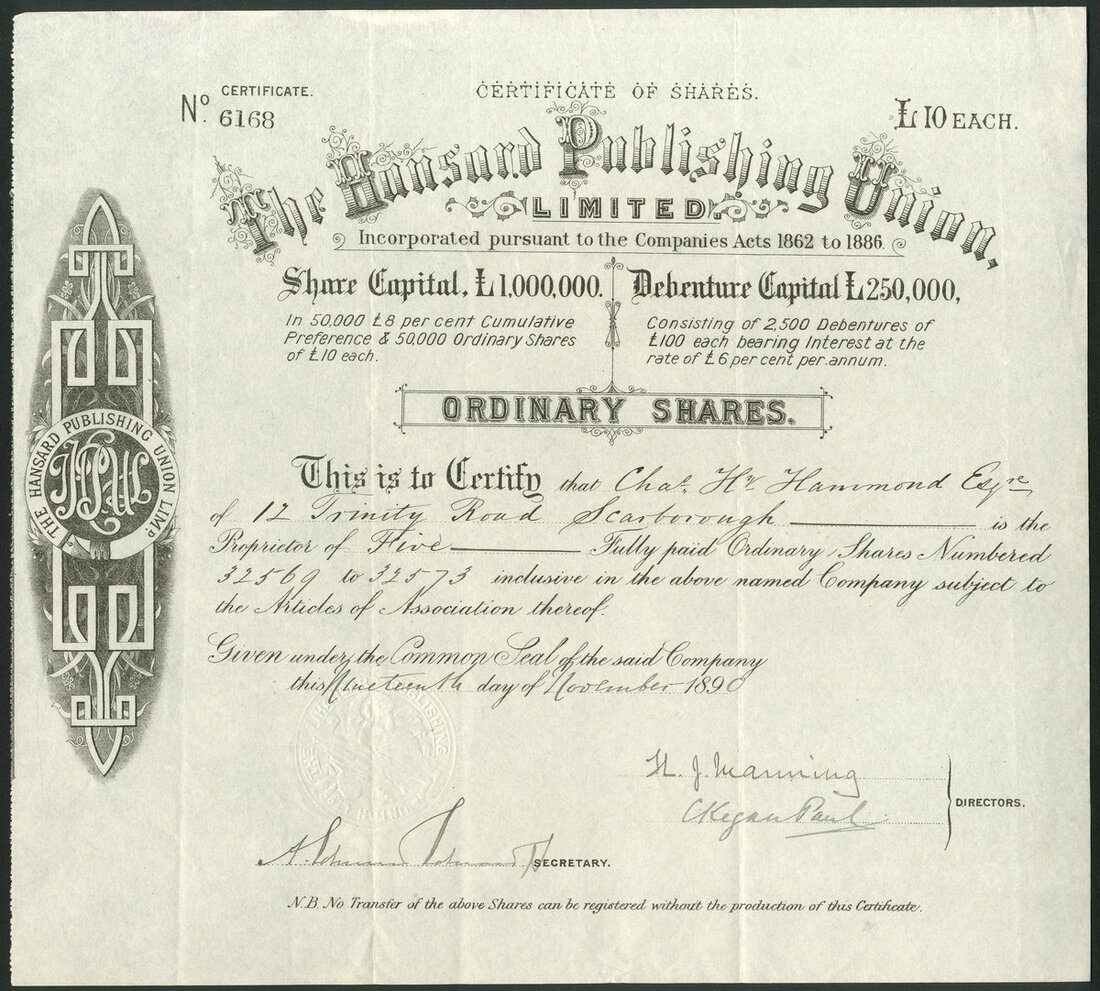 CERTIFICATE.
Nº 6168
CERTIFICATE OF SHARES.
£10 EACH.
The Hansard Publishing Union,
LIMITED.
Incorporated pursuant to the Companies Acts 1862 to 1886.
Share Capital, £1,000,000.
In 50,000 £8 per cent Cumulative
Preference & 50,000 Ordinary Shares
of £10 each.
Debenture Capital £250,000,
Consisting of 2,500 Debentures of
£100 each bearing Interest at the
rate of £6 per cent per annum.
ORDINARY SHARES.
THE HANSARD PUBLISHING UNION LIMD.
HPUL
This is to Certify that Chas. Hy. Hammond Esqre
of 12 Trinity Road Scarborough is the
Proprietor of Five Fully paid Ordinary Shares Numbered
32569 to 32573 inclusive in the above named Company subject to
the Articles of Association thereof.
Given under the Common Seal of the said Company
this Nineteenth day of November 1890
H. J. Manning
C Kegan Paul
DIRECTORS.
SECRETARY.
N.B. No Transfer of the above Shares can be registered without the production of this Certificate.